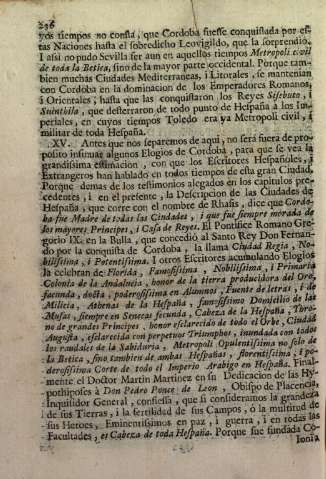 256
yos tiempos no consta, que Cordoba fuesse conquistada por es-
tas Naciones hasta el sobredicho Leovigildo, que la sorprendio.
I assi no pudo Sevilla ser aun en aquellos tiempos Metropoli civil
de toda la Betica, sino de la mayor parte occidental. Porque tam-
bien muchas Ciudades Mediterraneas, i Litorales, se mantenian
con Cordoba en la dominacion de los Emperadores Romanos,
i Orientales, hasta que las conquistaron los Reyes Sisebuto, i
Suinthila, que desterraron de todo punto de Hespaña a los Im-
periales, en cuyos tiempos Toledo era ya Metropoli civil, i
militar de toda Hespaña.
XV. Antes que nos separemos de aqui, no será fuera de pro-
posito insinuar algunos Elogios de Cordoba, para que se vea la
grandissima estimacion, con que los Escritores Hespañoles, i
Extrangeros han hablado en todos tiempos de esta gran Ciudad.
Porque demas de los testimonios alegados en los capitulos pre-
cedentes, i en el presente, la Descripcion de las Ciudades de
Hespaña, que corre con el nombre de Rhasis, dice que Cordo-
ba fue Madre de todas las Ciudades, i que fue siempre morada de
los mayores Principes, i Casa de Reyes. El Pontifice Romano Gre-
gorio IX. en la Bulla, que concedió al Santo Rey Don Fernan-
do por la conquista de Cordoba, la llama Ciudad Regia, No-
bilissima, i Potentissima. I otros Escritores acumulando Elogios
la celebran de Florida, Famosissima, Nobilissima, i Primaria
Colonia de la Andalucia, honor de la tierra producidora del Oro,
facunda, docta, poderosissima en Alumnos, Fuente de letras, i de
Milicia, Athenas de la Hespaña, famosissimo Domicilio de las
Musas, siempre en Senecas fecunda, Cabeza de la Hespaña, Thro-
no de grandes Principes, honor esclarecido de todo el Orbe, Ciudad
Augusta, esclarecida con perpetuos Triumphos, inundada con todos
los raudales de la Sabiduria, Metropoli Opulentissima no solo de
la Betica, sino tambien de ambas Hespañas, florentissima, i po-
derosissima Corte de todo el Imperio Arabigo en Hespaña. Final-
mente el Doctor Martin Martinez en su Dedicacion de las Hy-
pothiposes à Don Pedro Ponce de Leon, Obispo de Placencia,
Inquisidor General, confiessa, que si consideramos la grandeza
de sus Tierras, i la fertilidad de sus Campos, ò la multitud de
sus Heroes, Eminentissimos en paz, i guerra, i en todas las
Facultades, es Cabeza de toda Hespaña. Porque fue fundada Co-
lonia